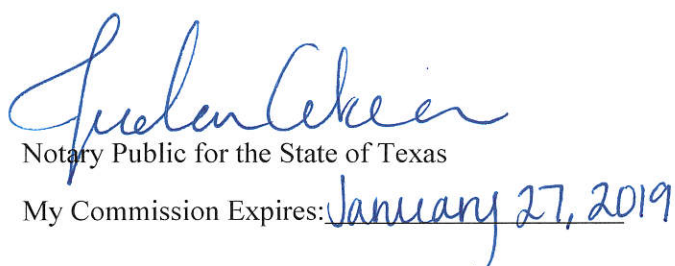 Notary Public for the State of Texas
My Commission Expires: January 27, 2019